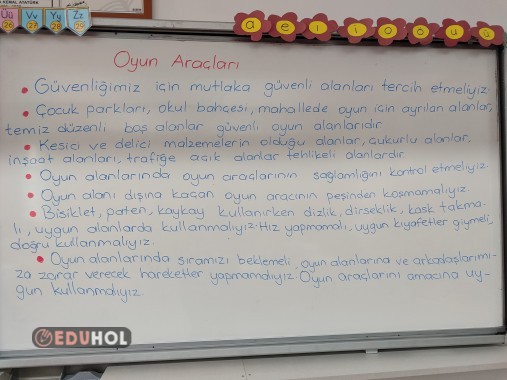 KEMAL ATATÜRK
Üü Vv Yy Zz
26 27 28 29
a e ı i o ö u ü
Oyun Araçları
• Güvenliğimiz için mutlaka güvenli alanları tercih etmeliyiz.
• Çocuk parkları, okul bahçesi, mahallede oyun için ayrılan alanlar,
temiz düzenli boş alanlar güvenli oyun alanlarıdır.
• Kesici ve delici malzemelerin olduğu alanlar, çukurlu alanlar,
inşaat alanları, trafiğe açık alanlar tehlikeli alanlardır.
• Oyun alanlarında oyun araçlarının sağlamlığını kontrol etmeliyiz.
• Oyun alanı dışına kaçan oyun aracının peşinden koşmamalıyız.
• Bisiklet, paten, kaykay kullanırken dizlik, dirseklik, kask takma-
lı, uygun alanlarda kullanmalıyız. Hız yapmamalı, uygun kıyafetler giymeli,
doğru kullanmalıyız.
• Oyun alanlarında sıramızı beklemeli, oyun alanlarına ve arkadaşlarımı-
za zarar verecek hareketler yapmamalıyız. Oyun araçlarını amacına uy-
gun kullanmalıyız.
EDUHOL